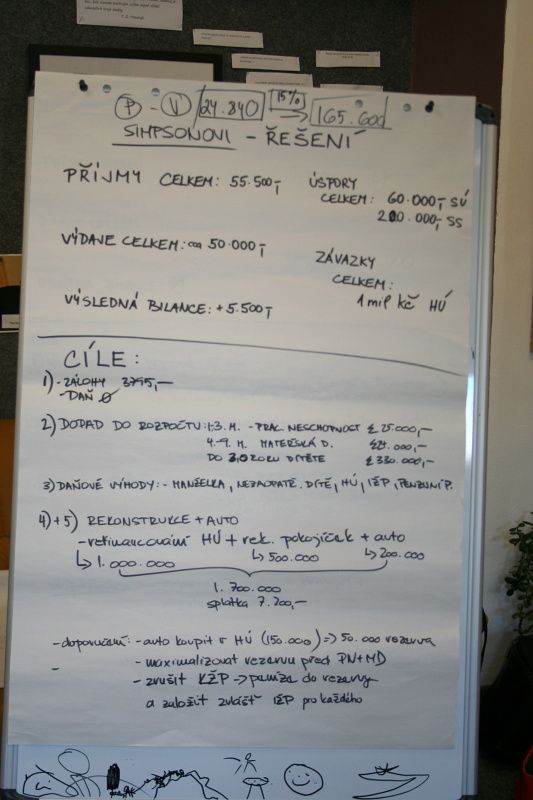 P - V 24.840 15% → 165.600
SIMPSONOVI - ŘEŠENÍ
PŘÍJMY CELKEM: 55.500,-
ÚSPORY
CELKEM: 60.000,- SÚ
200.000,- SS
VÝDAJE CELKEM: 50.000,-
ZÁVAZKY
CELKEM:
1 mil kč HÚ
VÝSLEDNÁ BILANCE: +5.500,-
CÍLE:
1) - ZÁLOHY 3795,-
- DAŇ Ø
2) DOPAD DO ROZPOČTU: 1-3. M. - PRAC. NESCHOPNOST 25.000,-
4.-9. M. MATEŘSKÁ D. 000,-
DO 3,0 ROKU DÍTĚTE 330.000,-
3) DAŇOVÉ VÝHODY: - MANŽELKA, NEZAOPATŘ. DÍTĚ, HÚ, IŽP, PENZIJNÍ P.
4) + 5) REKONSTRUKCE + AUTO
- refinancování HÚ + rek. pokojíček + auto
↳ 1.000.000 ↳ 500.000 ↳ 200.000
1.700.000
splátka 7.200,-
- doporučení: - auto koupit v HÚ (150.000) => 50.000 rezerva
- - maximalizovat rezervu před PN+MD
- zrušit KŽP → peníze do rezervy
a založit zvlášť IŽP pro každého